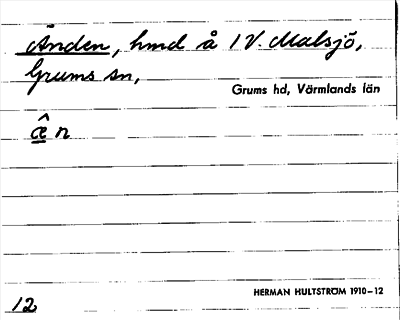 Änden, hmd å 1 V. Malsjö,
Grums sn,
Grums hd, Värmlands län
æ̂ n
HERMAN HULTSTRÖM 1910–12
12